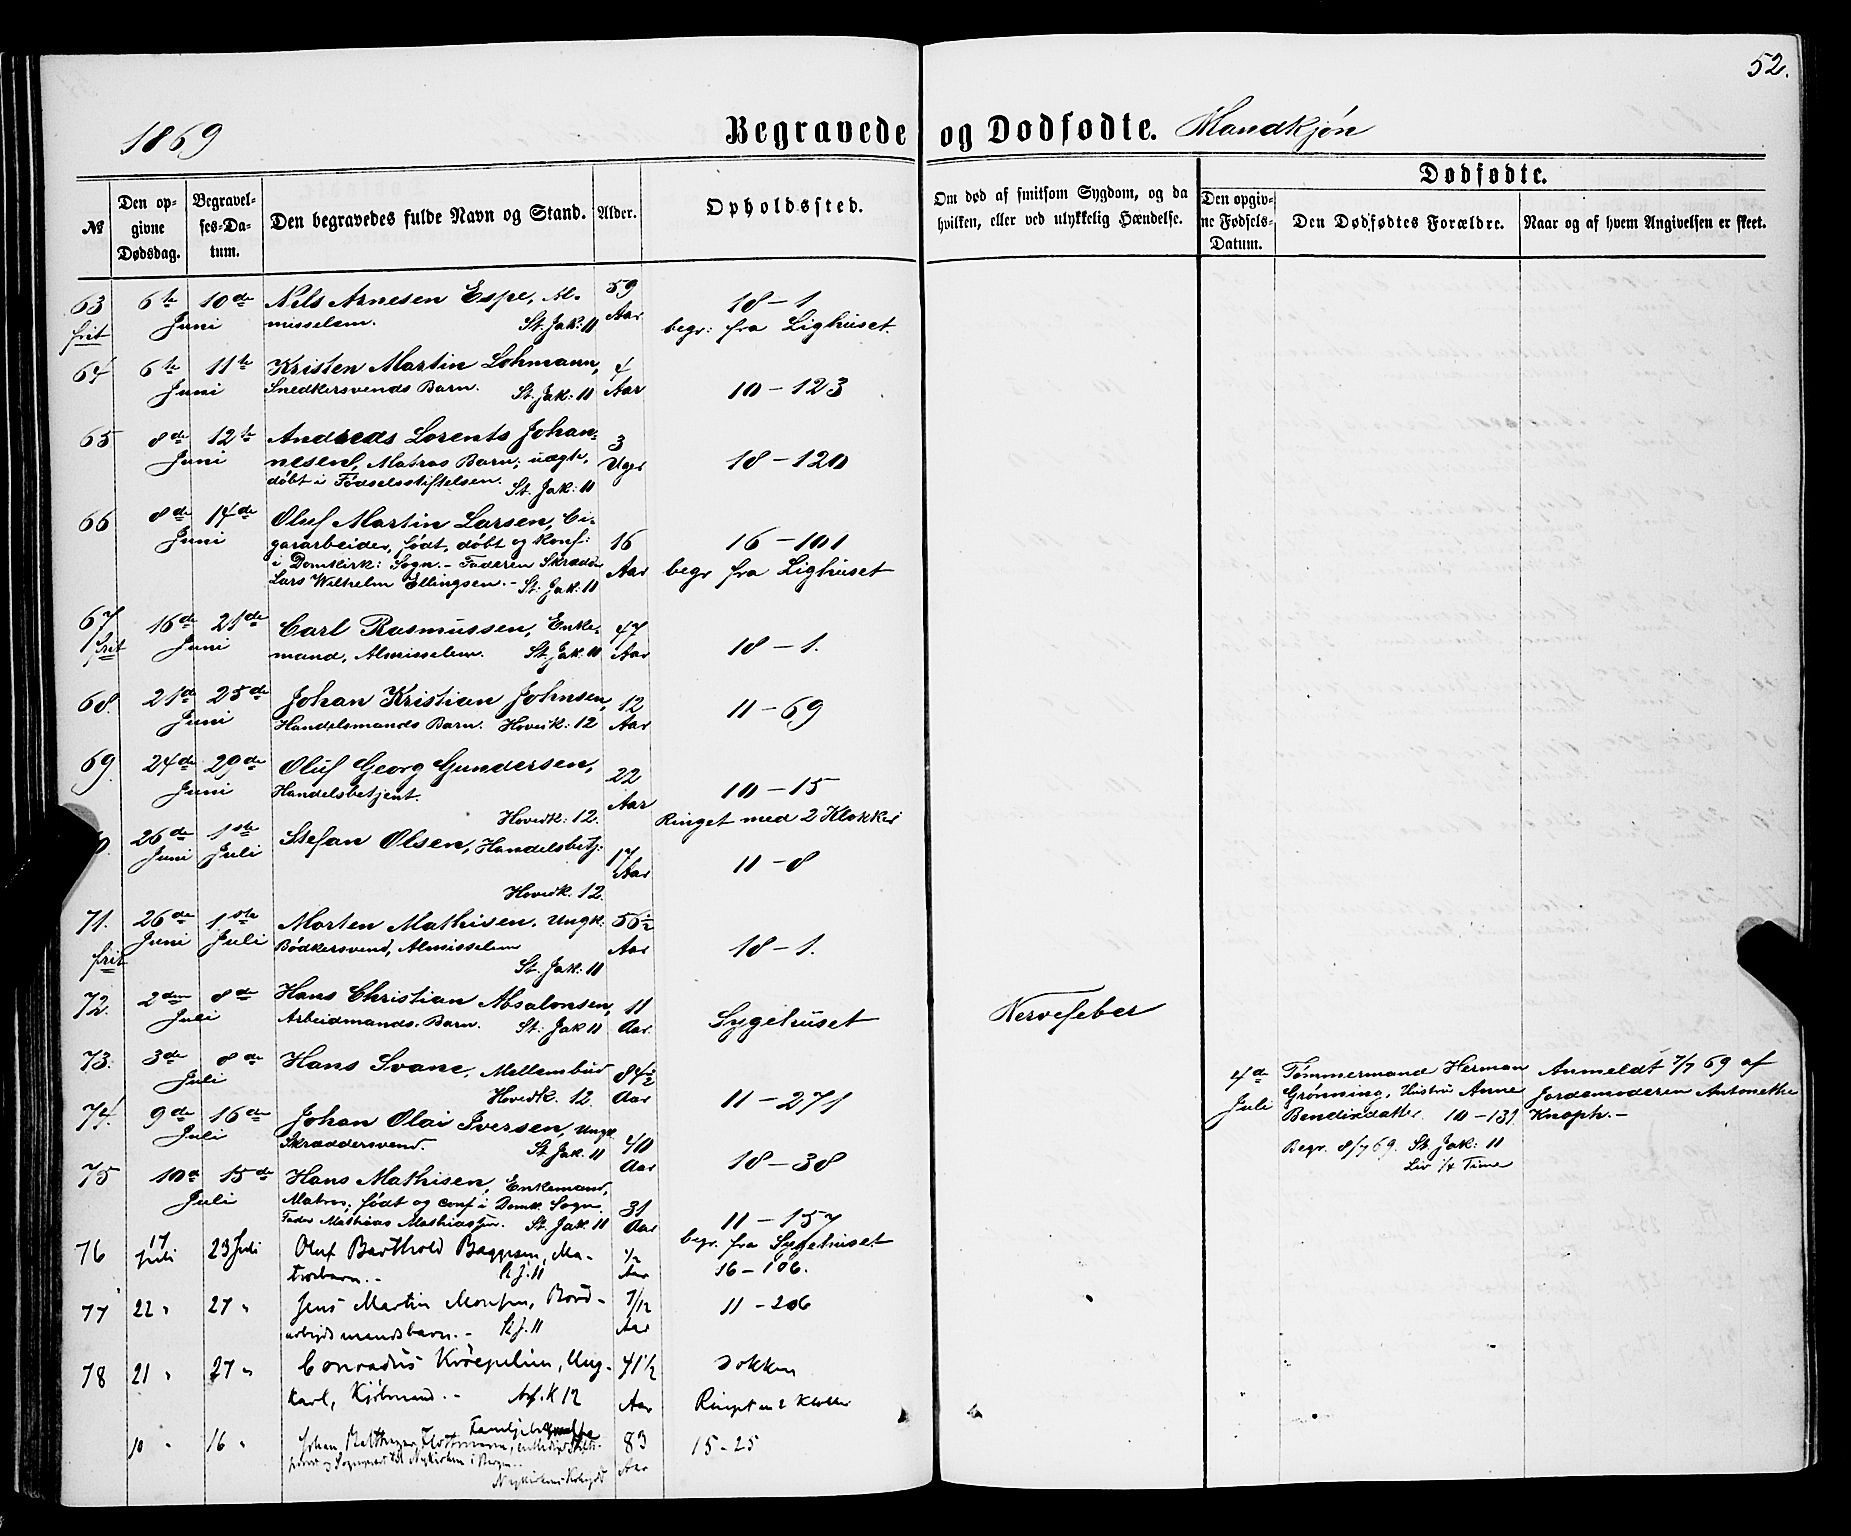 52.
1869 Begravede og Dødfødte. Mandkjøn
Dødfødte.
№ Den opgivne Dødsdag. Begravelses-Datum. Den begravedes fulde Navn og Stand. Alder. Opholdssted. Om død af smitsom Sygdom, og da hvilken, eller ved ulykkelig Hændelse. Den opgivne Fødsels-Datum. Den Dødfødtes Forældre. Naar og af hvem Angivelsen er skeet.
63 6te 10de Nels Arnesen Espe, Al- 59 18-1
frit Juni misselem. St. Jak: 11 Aar begr: fra Lighuset.
64 6te 11te Kristen Martin Lohmann, 4
Juni Snedkersvends Barn. St. Jak: 11 Aar 10-123
65 8de 12te Andreas Lorents Johan- 3
Juni nesen, Matros Barn, uægte, Uger 18-120
døbt i Fødselsstiftelsen. St. Jak: 11
66 8de 14de Oluf Martin Larsen, Ci-
Juni gararbeider, født, døbt og konf: 16 16-101
i Domkirk: Sogn. - Faderen Skrædder Aar begr fra Lighuset
Lars Wilhelm Ellingsen. - St: Jak: 11
67 16de 21de Carl Rasmussen, Enke- 47
frit Juni mand, Almisselem. St. Jak. 11 Aar 18-1.
68. 21de 25de Johan Kristian Johnsen, 12 11-69
Juni Handelsmands Barn. Hovedk: 12 Aar
69. 24de 29de Oluf Georg Gundersen, 22
Juni Handelsbetjent. Aar 10-15
Hovedk: 12. Ringet med 2 Klokker
0. 26de 1ste Stefan Olsen, Handelsbetj: 17
Juni Juli Aar 11-8
Hovedk. 12.
71. 26de 1ste Morten Mathisen. Ungk. 56½
frit Juni Juli Bødkersvend, Almisselem Aar 18-1.
St. Jak. 11
72. 2den 8de Hans Christian Absalonsen, 11
Juli Arbeidmands. Barn. St: Jak 11 Aar Sygehuset Nervefeber
73. 3de 8de Hans Svane, Mellembud 84½
Juli Hovedk. 12. Aar 11-271
4de Tømmermand Herman Anmeldt 7/7 69 af
Juli Grønning, Hustru Anne Jordemoderen Antonethe
Bendixdatter 10-139. Knoph.-
Begr. 8/7 69. St. Jak: 11
Liv ¼ Time
74. 9de 16de Johan Olai Iversen, Ungk. 40
Juli Skræddersvend. St. Jak. 11 Aar 18-38
75 10de 15de Hans Mathisen, Enkemand,
Juli Matros, født og conf i Domk. Sogn. 31
Fader Mathias Mathiassen. St. Jak. 11 Aar 11-157
begr. fra Sygehuset
76 17 Juli 23 Juli Oluf Barthold Baggesen, Ma- ½
trosbarn.- St J. 11 Aar 16-106.
77 22 " 27 " Jens Martin Monsen, Bord- 7/12 11-206
arbeidsmandsbarn.- St J. 11 Aar
78 21 " 27 " Conradus Kröepelien, Ung- 41½ Dokken
karl, Kjøbmand.- Hof. K 12 Aar Ringet m 2 Klokker
10 " 16 " Johan 83 15-25
og Sognepræst til Nykirken i Bergen.
Nykirkens Aar